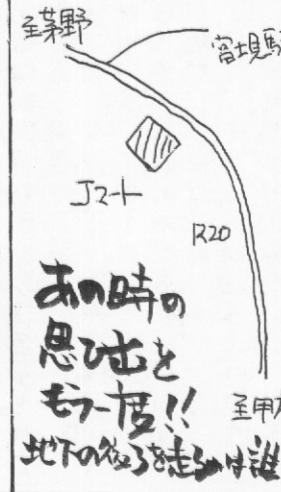 至茅野
富士見駅
Jマート
R20
あの時の
思ひ出を
もう一度!!
至甲
地下の後ろを走るのは誰